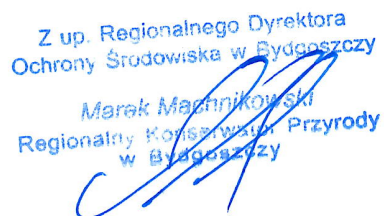 Z up. Regionalnego Dyrektora
Ochrony Środowiska w Bydgoszczy
Marek Machnikowski
Regionalny Konserwator Przyrody
w Bydgoszczy